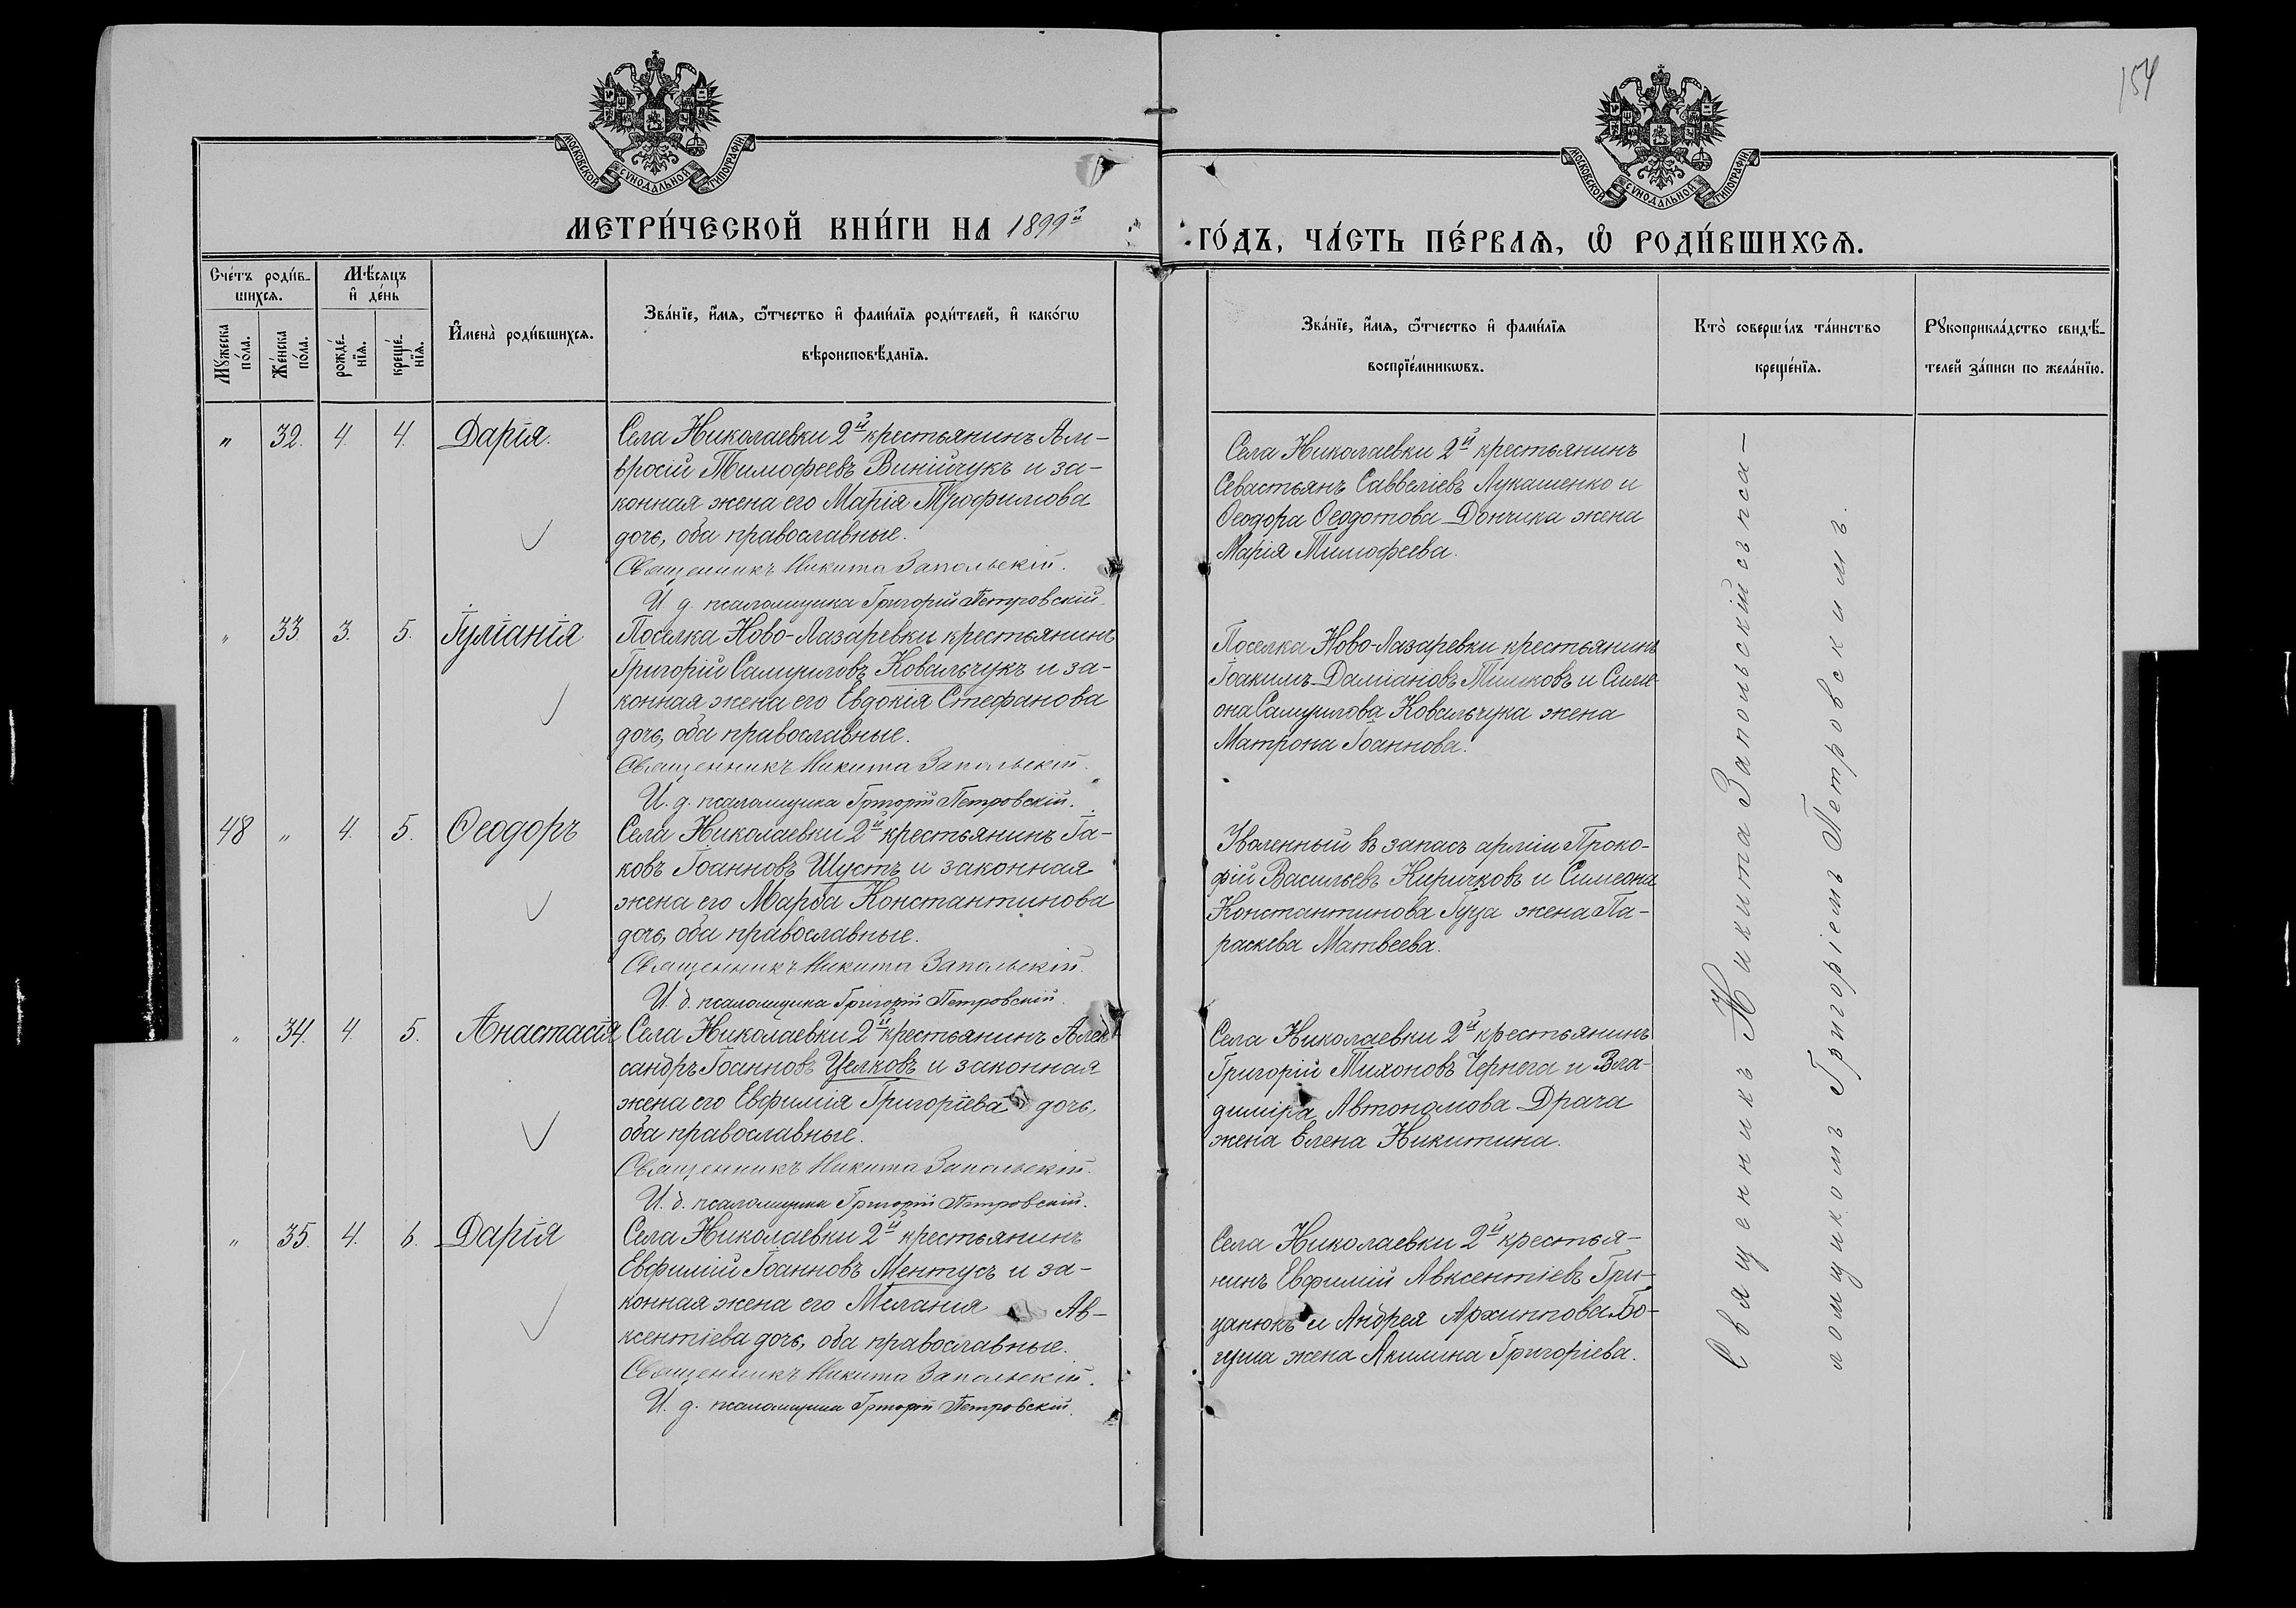 154
МОСКОВСКОЙ СѴНОДАЛЬНОЙ ТИПОГРАФІИ
МОСКОВСКОЙ СѴНОДАЛЬНОЙ ТИПОГРАФІИ
МЕТРИ́ЧЕСКОЙ КНИ́ГИ НА 1899й
ГО́ДЪ, ЧА́СТЬ ПЕ́РВАѦ, Ѡ РОДИ́ВШИХСѦ.
Сче́тъ роди́в-
шихсѧ.
Мѣ́сѧцъ
и҆ де́нь
Мꙋ́жеска
по́ла.
Же́нска
по́ла.
рожде́-
нїѧ.
креще́-
нїѧ.
И҆мена̀ роди́вшихсѧ.
Зва́нїе, и҆́мѧ, ѻ҆́тчество и҆ фами́лїѧ роди́телей, и҆ како́гѡ
вѣроисповѣ́данїѧ.
Зва́нїе, и҆́мѧ, ѻ҆́тчество и҆ фами́лїѧ
воспрїе́мникѡвъ.
Кто̀ соверши́лъ та́инство
креще́нїѧ.
Рꙋкоприкла́дство свидѣ́-
телей за́писи по жела́нїю.
" 32. 4. 4. Дарія.
Села Николаевки 2й крестьянинъ Ам-
вросій Тимофеевъ Винійчукъ и за-
конная жена его Марія Трофимова
дочь, оба православные.
Священникъ Никита Запольскій.
И. д. псаломщика Григорій Петровскій.
Села Николаевки 2й крестьянинъ
Севастьянъ Савveліевъ Лукашенко и
Ѳеодора Ѳеодотова Дончика жена
Марія Тимофеева.
" 33. 3. 5. Іуліанія
Поселка Ново-Лазаревки крестьянинъ
Григорій Самуиловъ Ковальчукъ и за-
конная жена его Евдокія Стефанова
дочь, оба православные.
Священникъ Никита Запольскій.
И. д. псаломщика Григорій Петровскій.
Поселка Ново-Лазаревки крестьянинъ
Іоакимъ Даміановъ и Симе-
она Самуилова Ковальчука жена
Матрона Іоаннова.
48 " 4. 5. Ѳеодоръ
Села Николаевки 2й крестьянинъ Іа-
ковъ Іоанновъ Шустъ и законная
жена его Марѳа Константинова
дочь, оба православные.
Священникъ Никита Запольскій.
И. д. псаломщика Григорій Петровскій.
Уволенный въ запасъ арміи Проко-
фій Васильевъ Киричковъ и Симеона
Константинова Гуца жена Па-
раскева Матвеева.
" 34. 4. 5. Анастасія
Села Николаевки 2й крестьянинъ Алек
сандръ Іоанновъ Целковъ и законная
жена его Евфимія Григоріева дочь,
оба православные.
Священникъ Никита Запольскій.
И. д. псаломщика Григорій Петровскій.
Села Николаевки 2й крестьянинъ
Григорій Тихоновъ Чернега и Вла-
диміра Автономова Драча
жена Елена Никитина.
" 35. 4. 6. Дарія
Села Николаевки 2й крестьянинъ
Евфимій Іоанновъ Ментусъ и за-
конная жена его Меланія Ав-
ксентіева дочь, оба православные.
Священникъ Никита Запольскій.
И. д. псаломщика Григорій Петровскій.
Села Николаевки 2й крестья-
нинъ Евфимій Авксентіевъ Гри-
цанюкъ и Андрея Архиппова Бо-
гуша жена Акилина Григоріева.
Священникъ Никита Запольскій съ пса-
ломщикомъ Григоріемъ Петровскимъ.